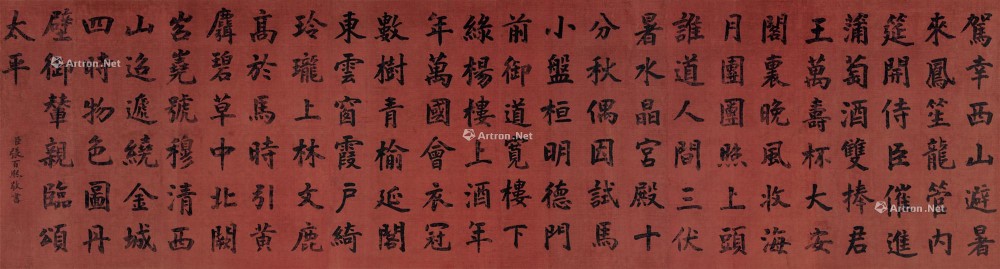 駕幸西山避暑
來鳳笙龍管内
筵開侍臣催進
蒲萄酒雙捧君
王萬壽杯大安
閣裏晚風收海
月團團照上頭
誰道人間三伏
暑水晶宮殿十
分秋偶因試馬
小盤桓明德門
前御道寬樓下
綠楊樓上酒年
年萬國會衣冠
數樹青榆延閣
東雲窗霞戶綺
玲瓏上林文鹿
髙於馬時引黃
麛碧草中北闕
岧嶤號穆清西
山迢遞繞金城
四時物色圖丹
壁御輦親臨頌
太平
臣張百熙敬書
Artron.Net
Artron.Net
Artron.Net
Artron.Net
Artron.Net